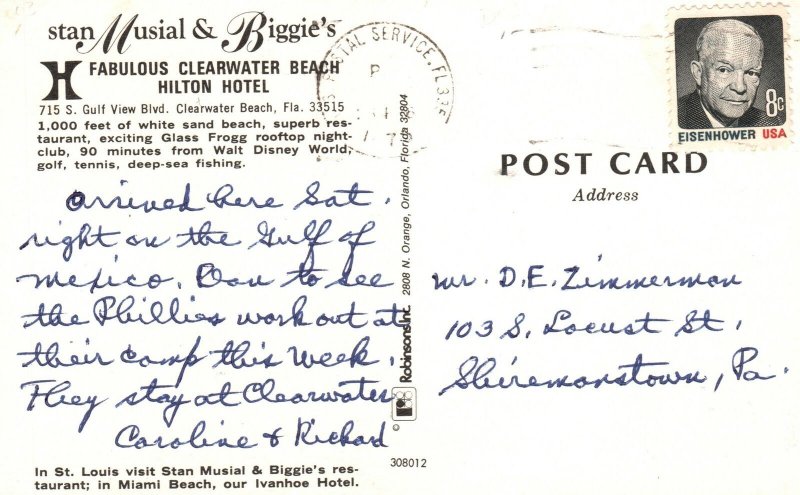 stan Musial & Biggie's
FABULOUS CLEARWATER BEACH
HILTON HOTEL
715 S. Gulf View Blvd. Clearwater Beach, Fla. 33515
1,000 feet of white sand beach, superb res-
taurant, exciting Glass Frogg rooftop night-
club, 90 minutes from Walt Disney World,
golf, tennis, deep-sea fishing.
Arrived here Sat.
right on the Gulf of
Mexico. Dan to see
the Phillies work out at
their camp this week.
They stay at Clearwater
Caroline & Richard
In St. Louis visit Stan Musial & Biggie's res-
taurant; in Miami Beach, our Ivanhoe Hotel.
Robinsons Inc. 2808 N. Orange, Orlando, Florida 32804
©
308012
POSTAL SERVICE, FL 335
P
EISENHOWER USA
8c
POST CARD
Address
Mr. D.E. Zimmerman
103 S. Locust St.
Shiremanstown, Pa.